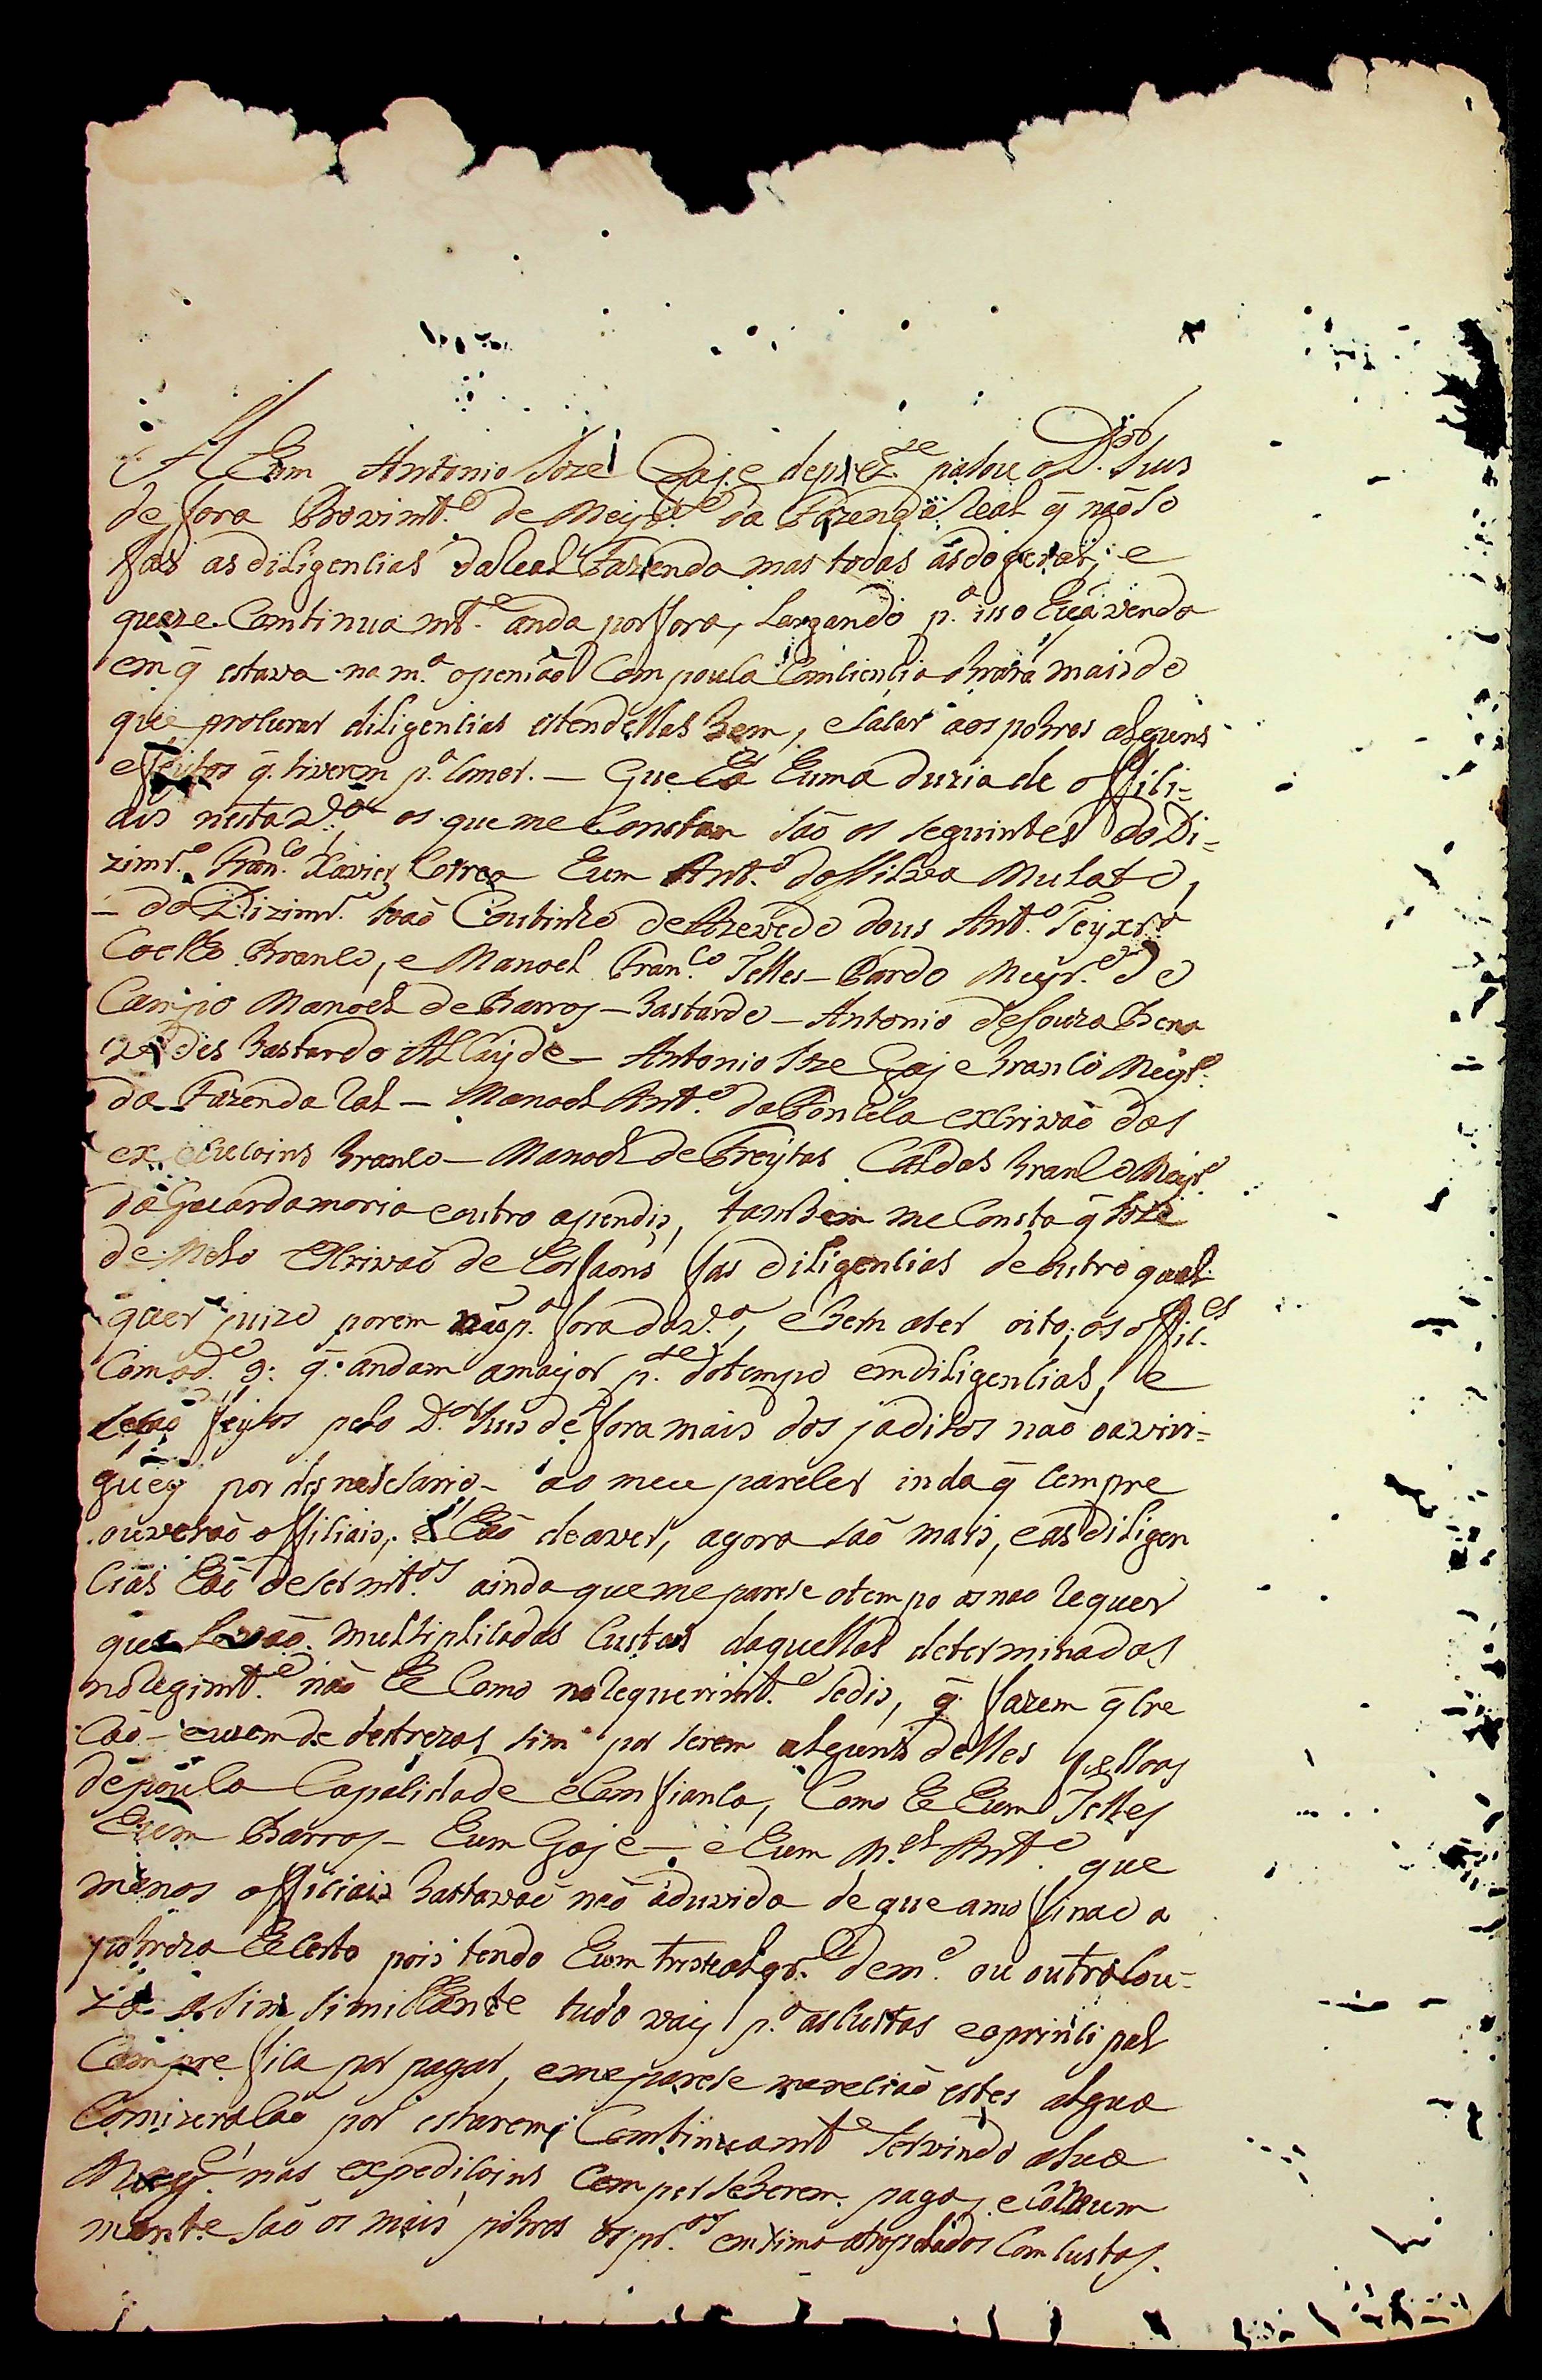 A Hum Antonio Joze Gaje deprez.te pasou o D.or Juis
de fora Provimt.o de Meyr.o da Fazenda Real q̃ não só
fas as diligencias da Real Fazenda mas todas as do geral; e
quaze Continuamt.e anda por fora, Largando p.a isso hũa venda
em q̃ estava na m.a openião Com pouca Conciencia
que procurar diligencias estendellas bem, e sacar aos pobres alguns
effeytos q̃ tiverem p.a comer. — Que há huma duzia de offici=
ais nesta V.a os que me Constam são os seguintes do Di=
zimr.o Fran.co Xavier Correa hum Ant.o da Silva Mulato,
— do Dizimr.o João Coutinho de Azevedo dous Ant.o Teyxr.a
Coelho Branco, e Manoel Fran.co Telles — Pardo Meyr.o do
Campo Manoel de Barros — bastardo — Antonio de Souza Bena
vides bastardo Alcayde — Antonio Joze Gaje branco Meyr.o
da Fazenda Ral — Manoel Ant.o da Fonceca excrivão das
execucoins branco — Manoel de Freytas Caldas branco Meyr.o
da Guardamoria e outro apendis, tambem me Consta q̃ Joze
de Melo Escrivão de Orfaons fas diligencias de outro qual
quer juizo porem não p.a fora da V.a, e bem a ser oito, os offic.es
Como d.e 9: q̃ andam a mayor p.te do tempo em diligencias, e
serão feytos pelo D.or Juis de fora mais dos ja ditos não o aviri=
guey por desnescesario — ao meu parecer inda q̃ cempre
ouverão officiais, e hão de aver, agora são mais, e as diligen
cias hão de ser mt.as ainda que me parese o tempo as não requer
que levão multiplicadas Custas daquellas determinadas
no Regimt.o não he Como no requerimt.o se dis, q̃ fazem q̃ cre
cão — e uzem de destrezas sim por serem alguns delles pessoas
de pouca Capacidade e Comfianca, Como he hum Telles
hum Barros — hum Gaje — e hum M.el Ant.o que
menos officiais bastavão não a duvida de que amo finao a
pobreza he certo pois tendo hum triste alqr.e de m.o ou outra cou=
za asim similhante tudo vay p.a as Custas e o principal
Cempre fica por pagar, e me parese mereciao estes algua
Comizeração por estarem Continuamt.e servindo a Sua
Mag.e nas expedicoins Cem perseberem pagas e comum
mente são os mais pobres os pr.os em timo atropelados Com Custas.